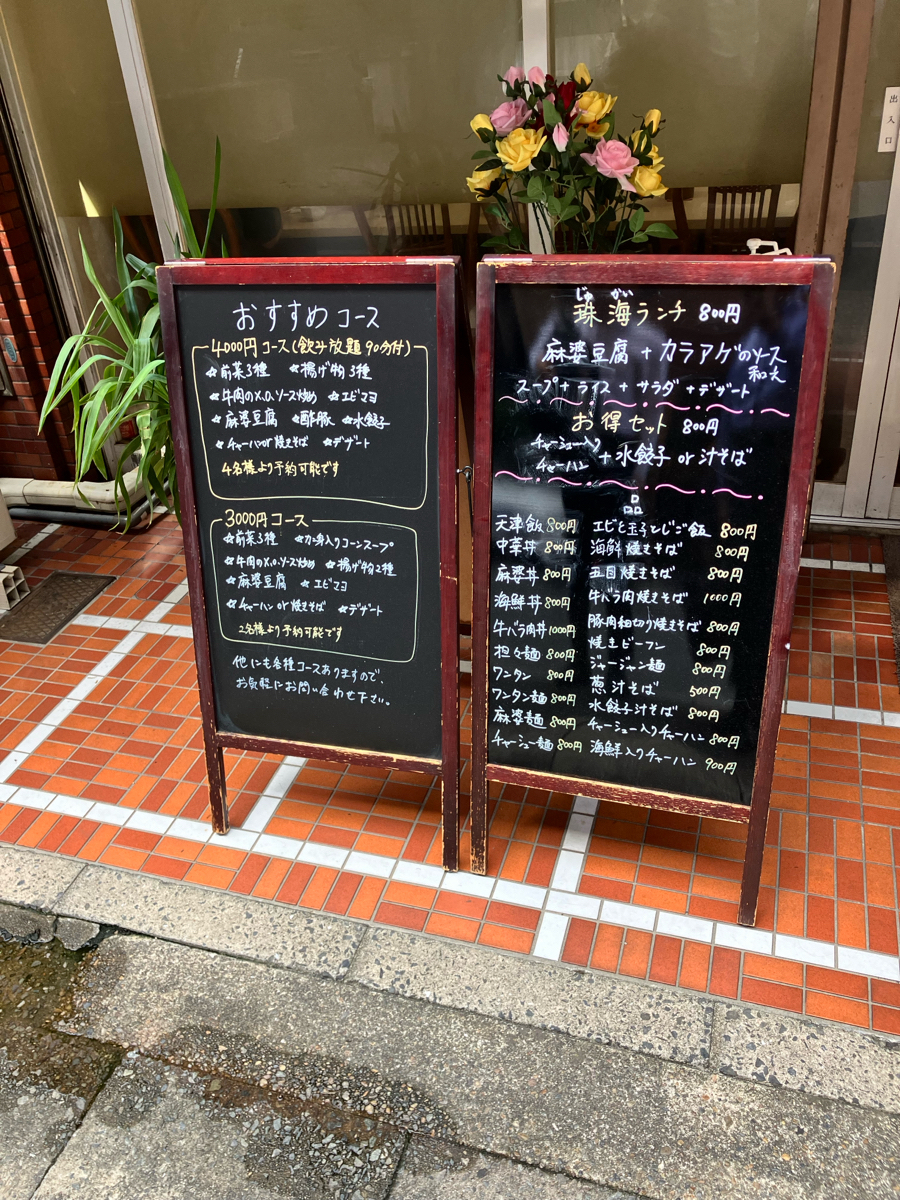 出入口
おすすめコース
4000円コース(飲み放題90分付)
☆前菜3種 ☆揚げ物3種
☆牛肉のX.O.ソース炒め ☆エビマヨ
☆麻婆豆腐 ☆酢豚 ☆水餃子
☆チャーハンor焼きそば ☆デザート
4名様より予約可能です
3000円コース
☆前菜3種 ☆カニ身入りコーンスープ
☆牛肉のX.O.ソース炒め ☆揚げ物2種
☆麻婆豆腐 ☆エビマヨ
☆チャーハンor焼きそば ☆デザート
2名様より予約可能です
他にも各種コースありますので、
お気軽にお問い合わせ下さい。
じゅ かい
珠海ランチ 800円
麻婆豆腐+カラアゲのソース
和え
スープ+ライス+サラダ+デザート
お得セット 800円
チャーシュー入り
チャーハン +水餃子or汁そば
品
天津飯 800円 エビと玉子とじご飯 800円
中華丼 800円 海鮮焼きそば 800円
麻婆丼 800円 五目焼きそば 800円
海鮮丼 800円 牛バラ肉焼きそば 1000円
牛バラ肉丼 1000円 豚肉細切り焼きそば 800円
担々麺 800円 焼きビーフン 800円
ワンタン 800円 ジャージャン麺 800円
ワンタン麺 800円 葱汁そば 500円
麻婆麺 800円 水餃子汁そば 800円
チャーシュー麺 800円 チャーシュー入りチャーハン 800円
海鮮入りチャーハン 900円